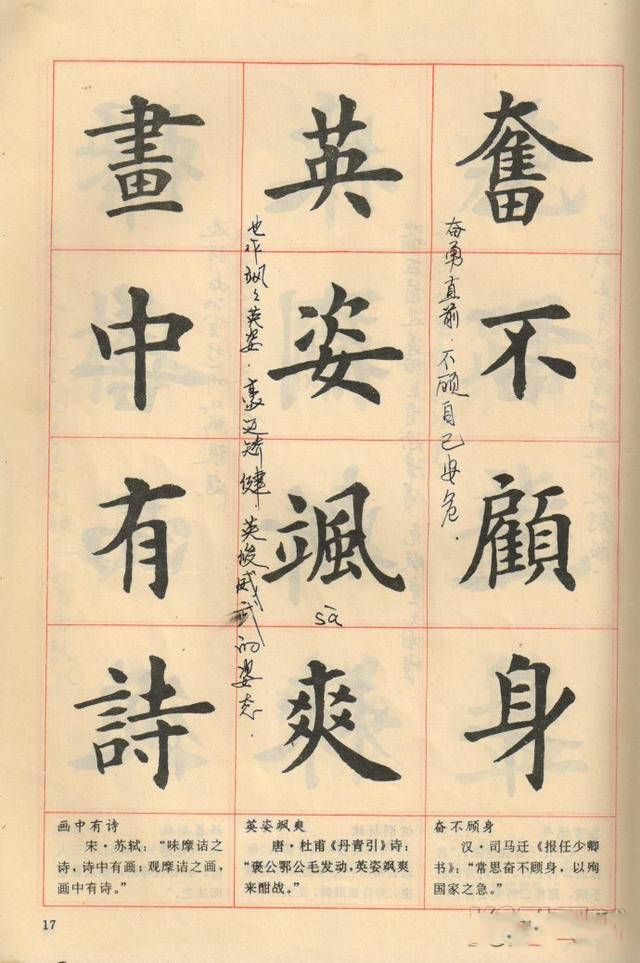 奮不顧身
奋勇直前·不顾自己安危.
英姿颯爽
sà
也作飒飒英姿·豪迈矫健 英俊威武的姿态.
畫中有詩
奋不顾身
汉·司马迁《报任少卿
书》：“常思奋不顾身，以殉
国家之急。”
英姿飒爽
唐·杜甫《丹青引》诗：
“褒公鄂公毛发动，英姿飒爽
来酣战。”
画中有诗
宋·苏轼：“味摩诘之
诗，诗中有画；观摩诘之画，
画中有诗。”
17